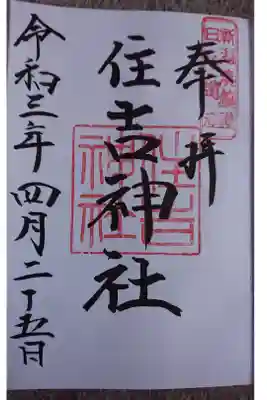 奉拝
住吉神社
住吉神社
令和三年四月二十五日